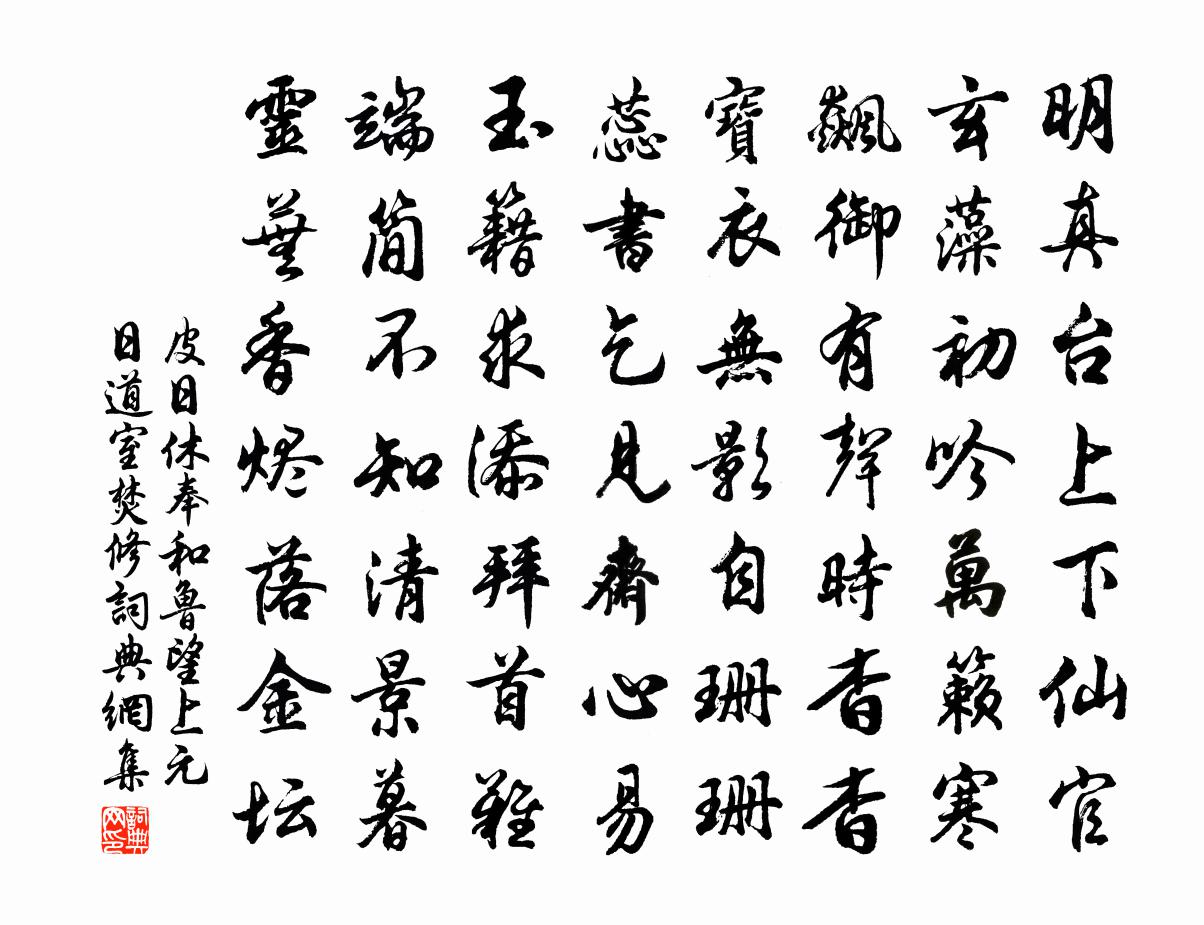 明真台上下仙官
玄藻初吟萬籟寒
飆御有聲時杳杳
寶衣無影自珊珊
蕊書乞見齋心易
玉籍求添拜首難
端簡不知清景暮
靈蕪香烬落金坛
皮日休奉和魯望上元
日道室焚修詞典網集
詞典
网印